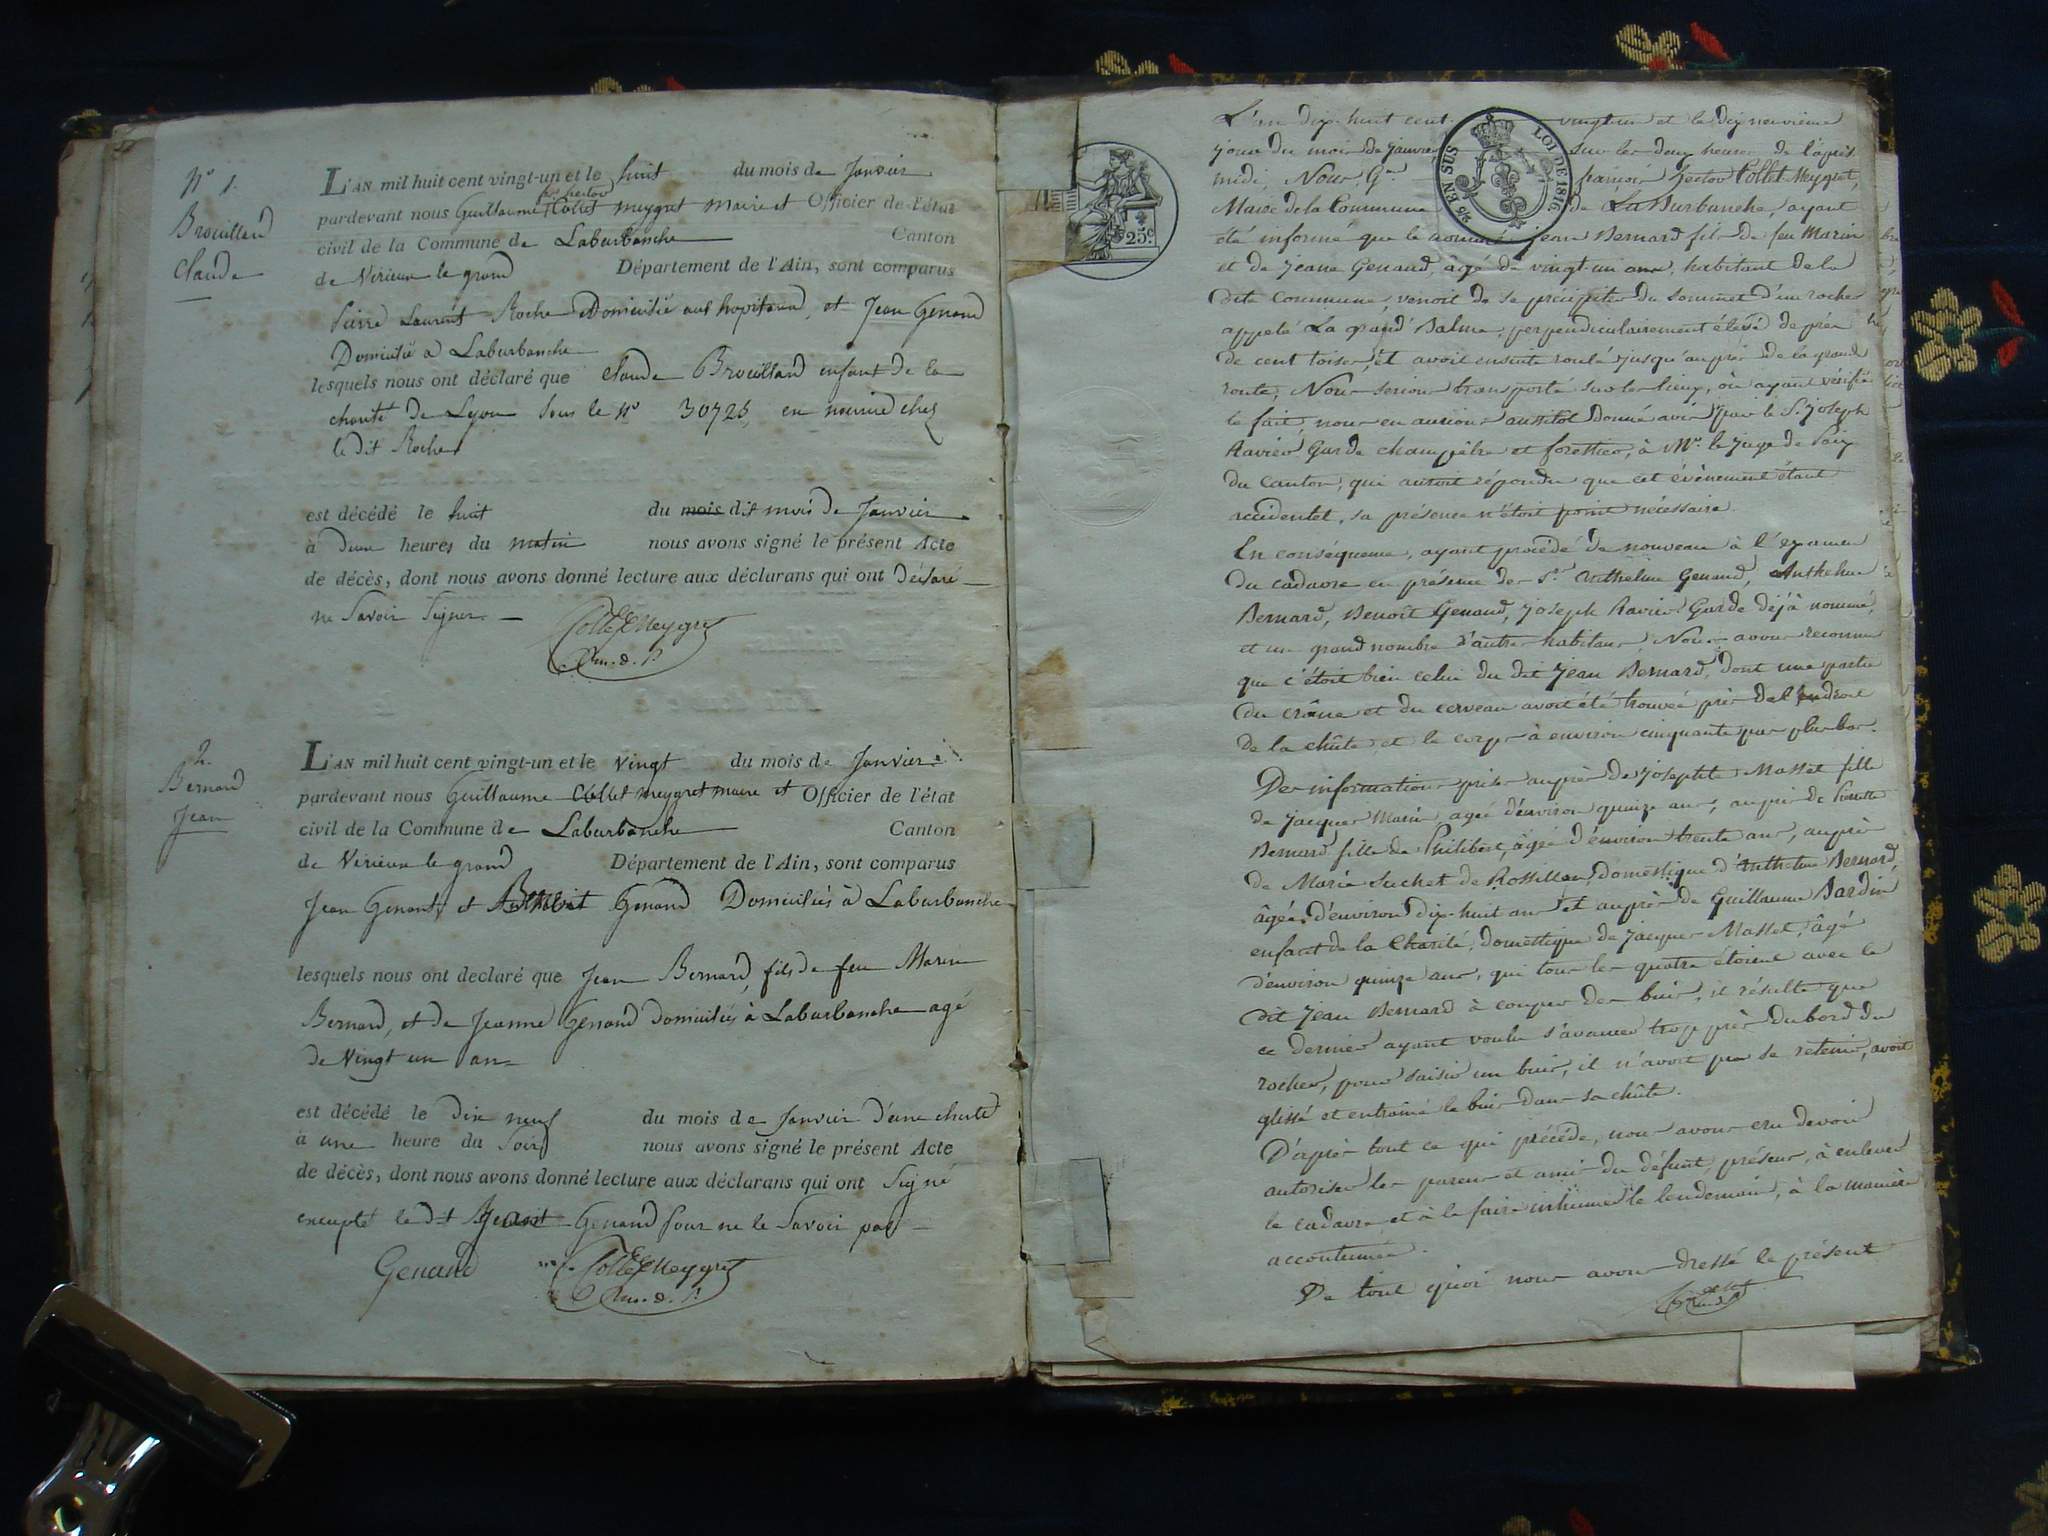 N° 1.
Brouilland
Claude
L'AN mil huit cent vingt-un et le huit du mois de Janvier
pardevant nous Guillaume fçs hector Collet Meygret Maire et Officier de l'état
civil de la Commune de Laburbanche Canton
de Virieux le grand Département de l'Ain, sont comparus
Pierre Laurent Roche Domicilié aus hopitaux, et Jean Genand
Domicilié a Laburbanche
lesquels nous ont déclaré que Claude Brouilland enfant de la
charité de Lyon sous le N° 30725, en nourrice chez
le dit Roche
est décédé le huit du mois dit mois de Janvier
à deux heures du matin nous avons signé le présent Acte
de décès, dont nous avons donné lecture aux déclarans qui ont déclaré
ne Savoir Signer
Collet Meygret
2.
Bernard
Jean
L'AN mil huit cent vingt-un et le vingt du mois de Janvier
pardevant nous Guillaume Collet meygret maire et Officier de l'état
civil de la Commune de Laburbanche Canton
de Virieux le grand Département de l'Ain, sont comparus
Jean Genand, et Benoit Genand Domiciliés à Laburbanche
lesquels nous ont déclaré que Jean Bernard, fils de feu Marin
Bernard, et de Jeanne Genand domiciliés à Laburbanche agé
de Vingt un an
est décédé le dix neuf du mois de Janvier d'une chute
à une heure du Soir nous avons signé le présent Acte
de décès, dont nous avons donné lecture aux déclarans qui ont Signé
excepté le dit Jean Genand pour ne le Savoir pas
Genand Collet Meygret
25c
EN SUS LOI DE 1816
L'an dix-huit cent vingt-un et le dix neuvième
jour du mois de janvier sur les deux heures de l'après
midi, Nous, Gme françois hector Collet-Meygret,
Maire de la Commune de La Burbanche, ayant
été informé que le nommé jean Bernard fils de feu Marin
et de jeane Genand, âgé de vingt-un ans, habitant de la
dite commune, venoit de se précipiter du sommet d'un rocher
appelé La grand' Balme, perpendiculairement élevé de près
de cent toises, et avoit ensuite roulé jusqu'auprès de la grande
route, Nous serions transporté sur les lieux, où ayant vérifié
le fait, nous en aurions aussitôt donné avis par le Sr joseph
Ravier Garde champêtre et forestier, à Mr le juge de Paix
du Canton, qui auroit répondu que cet évènement étant
accidentel, sa présence n'étoit point nécessaire.
En conséquence, ayant procédé de nouveau à l'examen
du cadavre en présence des Srs Anthelme Genand, Anthelme
Bernard, Benoît Genand, joseph Ravier Garde déjà nommé,
et un grand nombre d'autres habitans, Nous avons reconnu
que c'étoit bien celui du dit jean Bernard, dont une partie
du crâne et du cerveau avoit été trouvée près de l'endroit
de la chûte, et le corps à environ cinquante pas plus bas.
Des informations prises auprès de josephte Masset fille
de jacques Marin, agée d'environ quinze ans, auprès de Pierrette
Bernard fille de Philibert, âgée d'environ trente ans, auprès
de Marie Suchet de Rossillon, domestique d'Anthelme Bernard,
âgée d'environ dix-huit ans et auprès de Guillaume Jardin
enfant de la Charité, domestique de jacques Masset, âgé
d'environ quinze ans, qui tous les quatre étoient avec le
dit jean Bernard à couper des buis, il résulte que
ce dernier ayant voulu s'avancer trop près du bord du
rocher, pour saisir un buis, il n'avoit pu se retenir, avoit
glissé et entrainé le buis dans sa chûte.
D'après tout ce qui précède, nous avons cru devoir
autoriser les parens et amis du défunt, présens, à enlever
le cadavre et à le faire inhumer le lendemain, à la manière
accoutumée.
De tout quoi nous avons dressé le présent